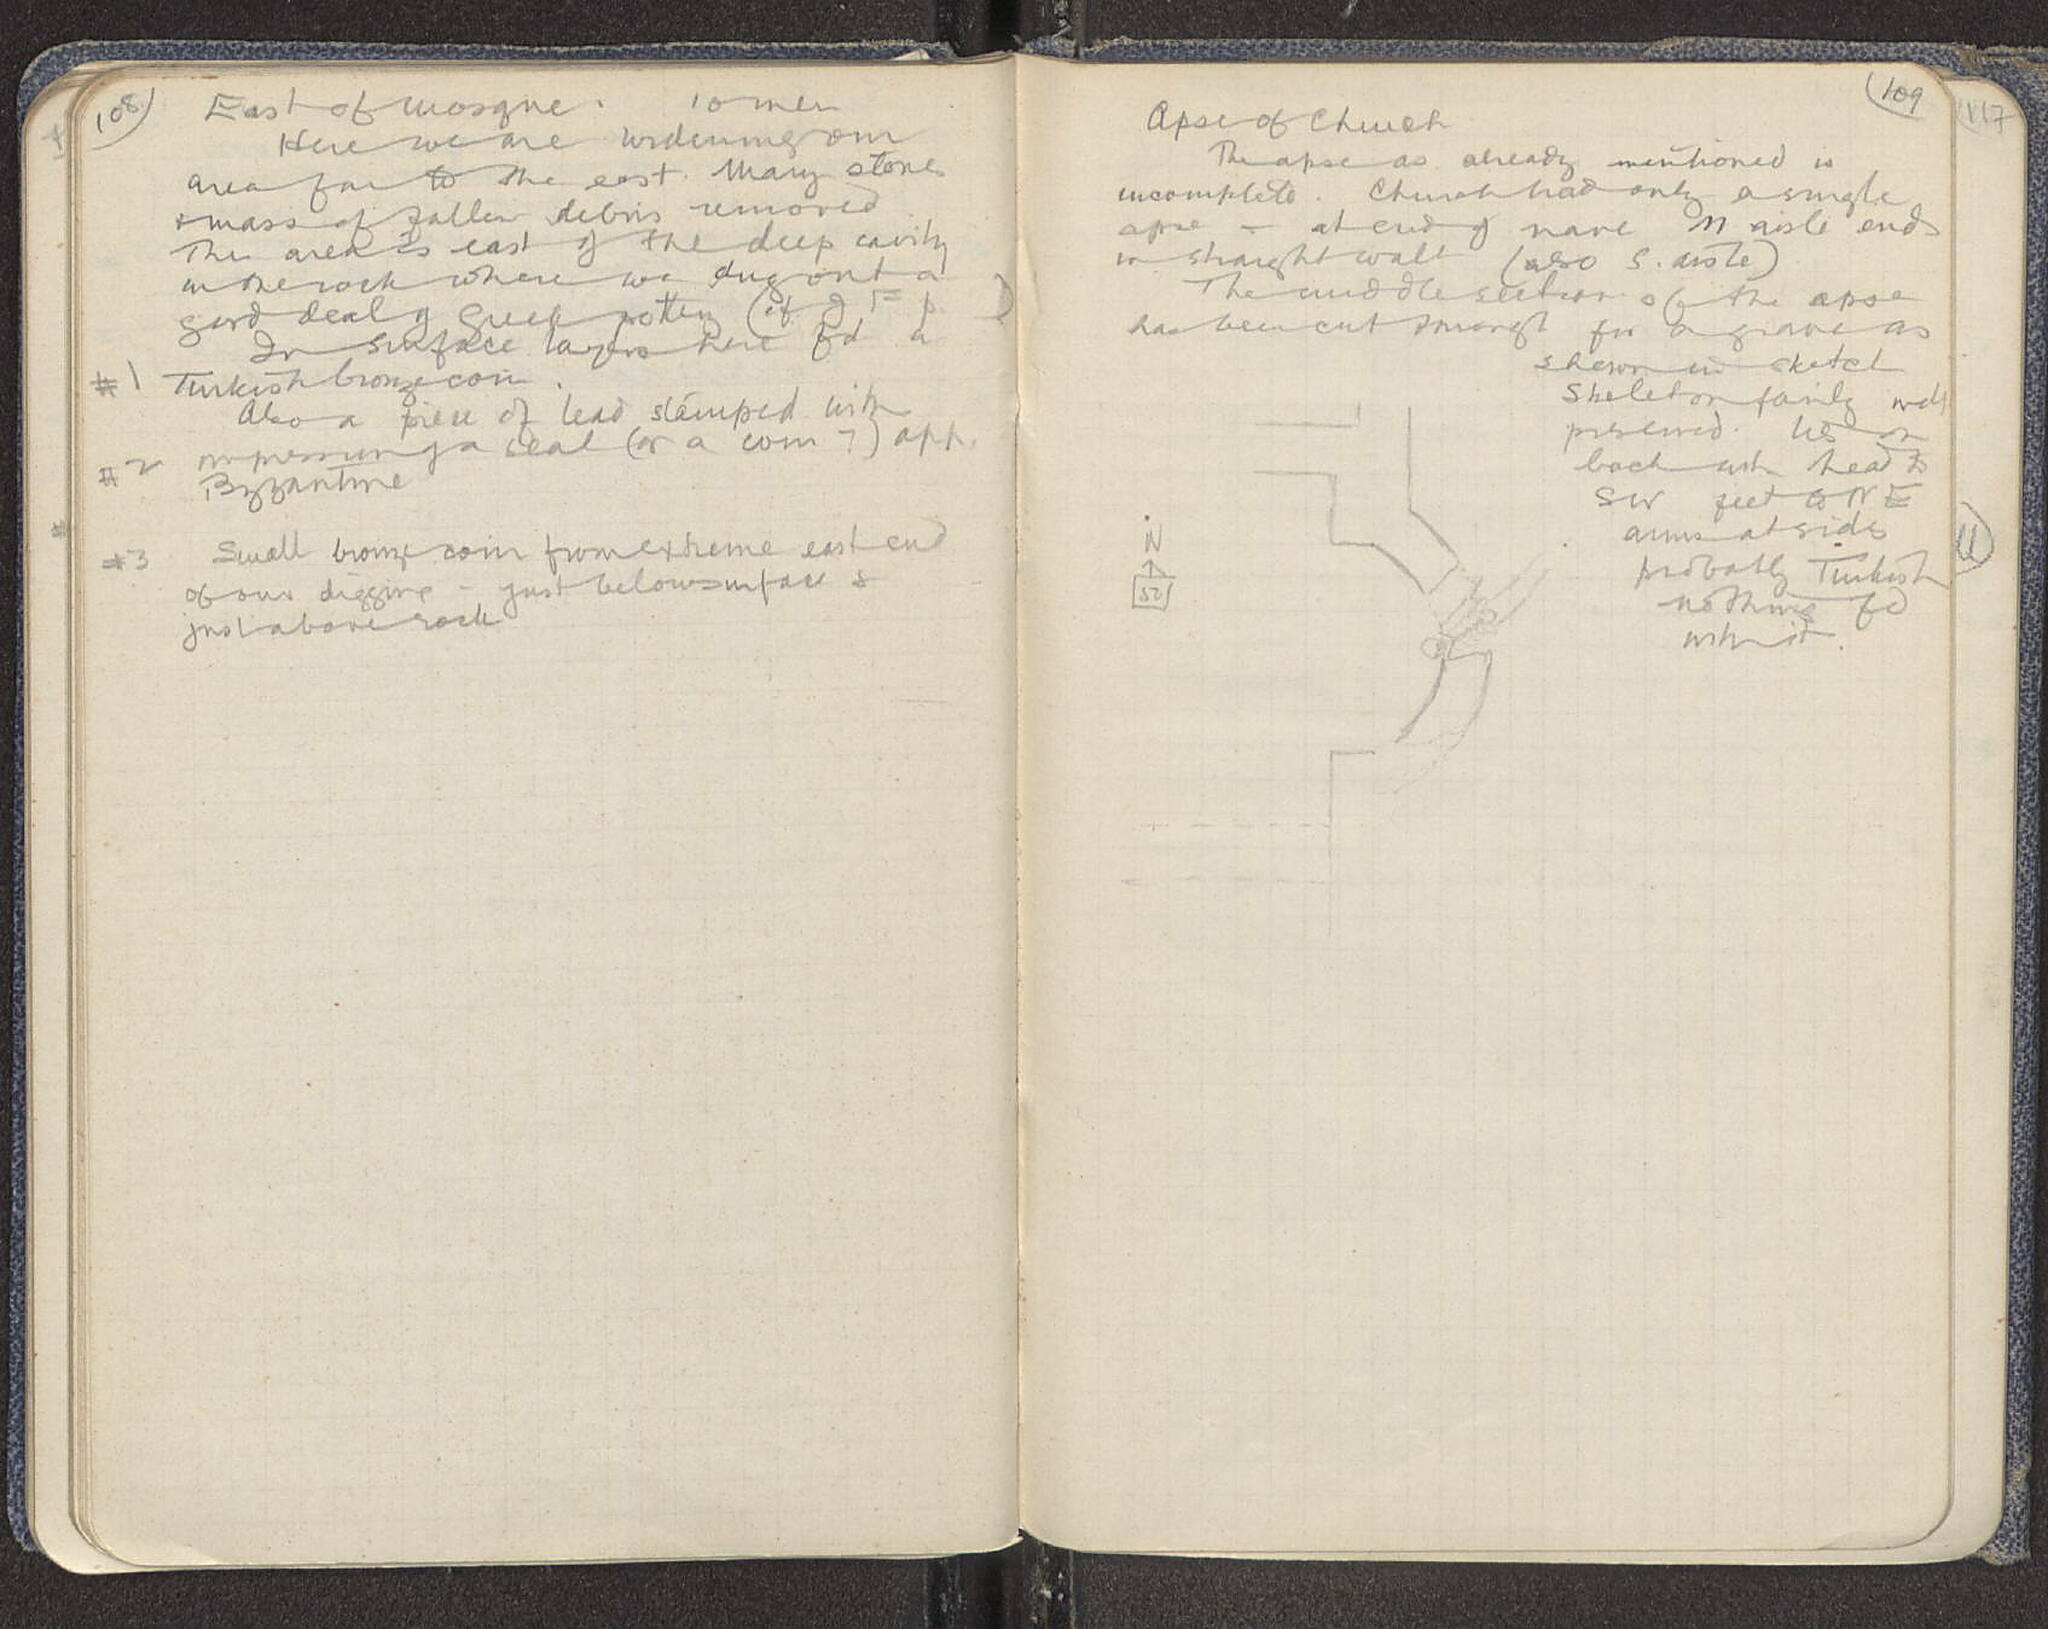 108
East of Mosque. 10 men
Here we are widening our
area far to the east. Many stones
+ mass of fallen debris removed
This area is east of the deep cavity
in the rock where we dug out a
good deal of Greek pottery (cf. J F p. )
In surface layers here fd a
#1 Turkish bronze coin.
Also a piece of lead stamped with
#2 impression of a seal (or a coin ?) app.
Byzantine
#3 Small bronze coin from extreme east end
of our digging - just below surface &
just above rock
109
Apse of Church
The apse as already mentioned is
incomplete. Church had only a single
apse - at end of nave N aisle ends
in straight wall (also S. aisle)
The middle section of the apse
has been cut through for a grave as
shown in sketch
Skeleton fairly well
preserved. lies on
back with head to
SW feet to NE
arms at sides
probably Turkish
nothing fd
with it.
N
52
117